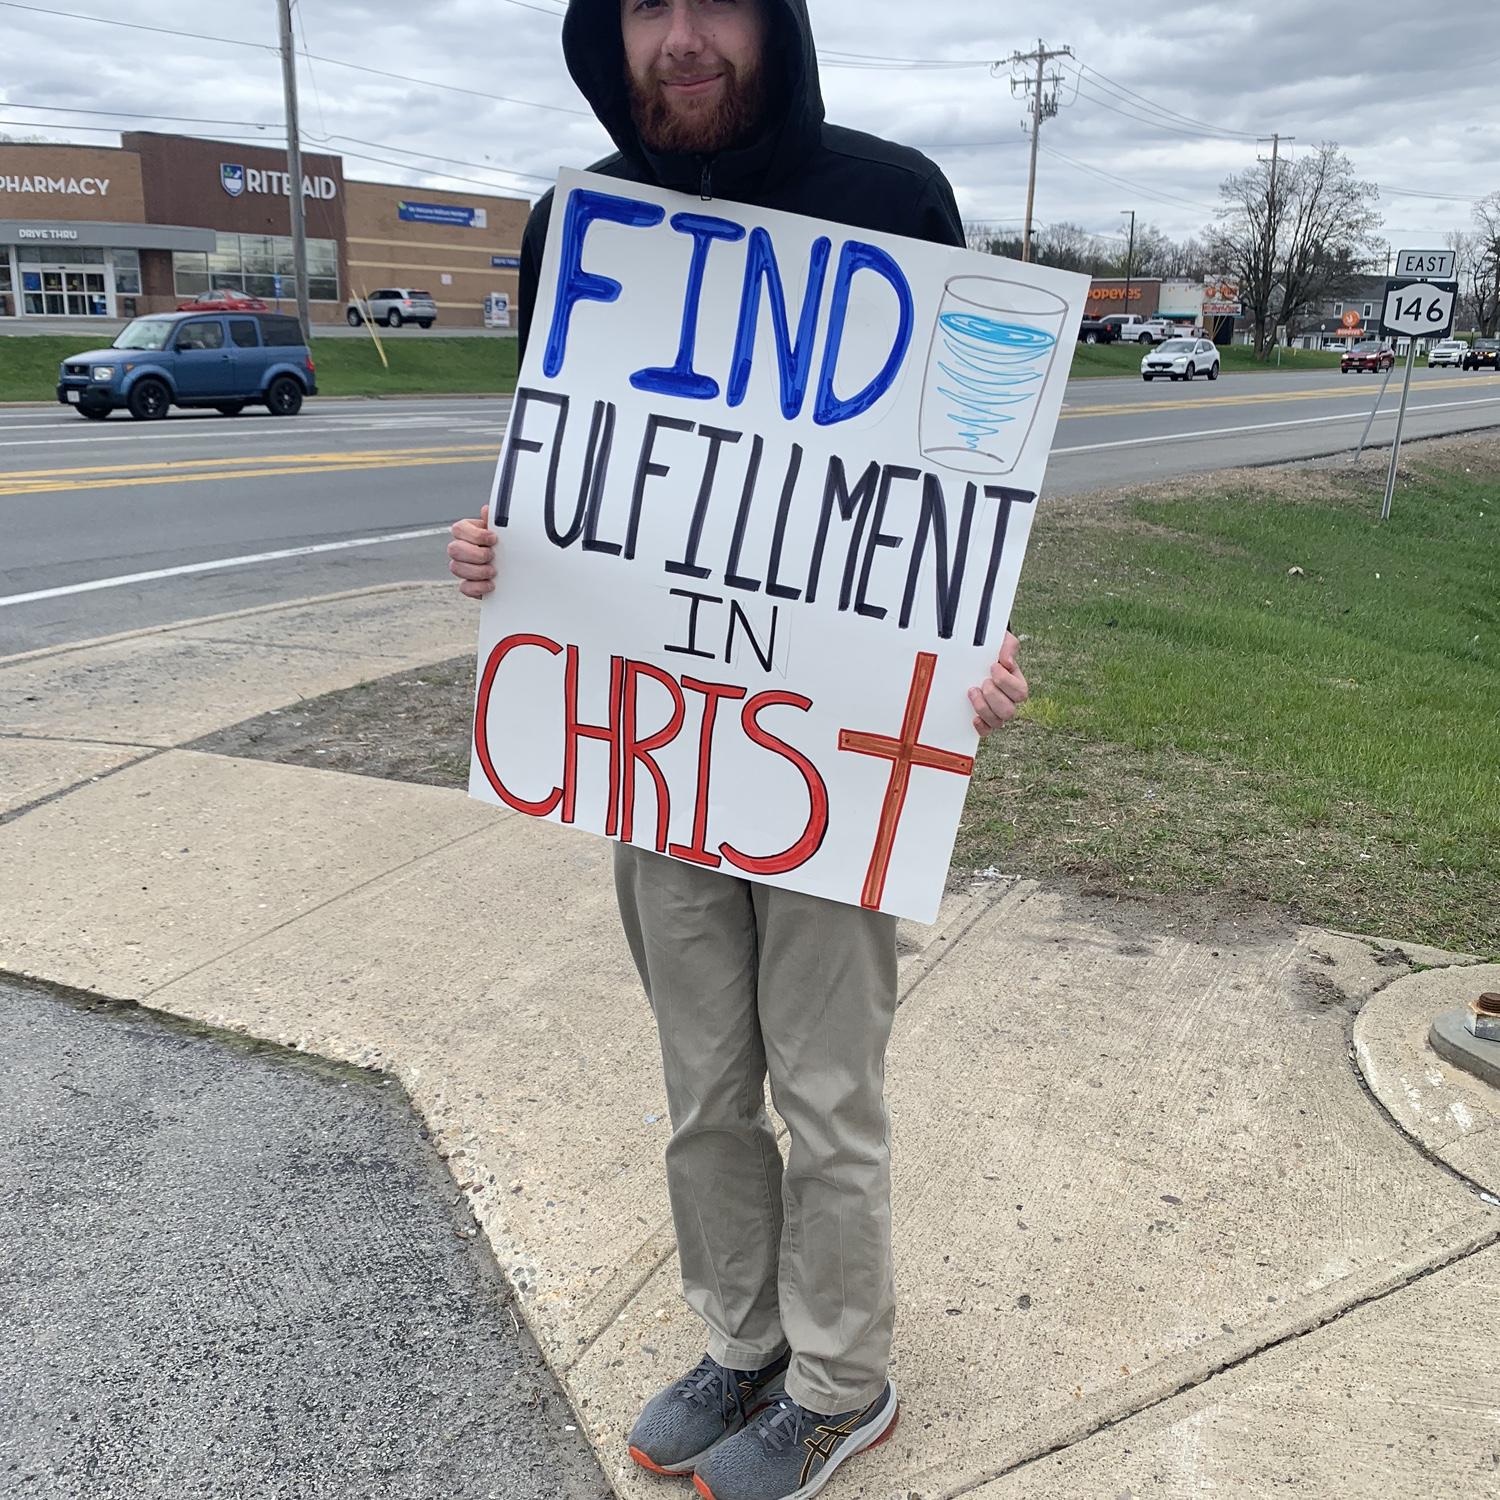 PHARMACY
RITE AID
DRIVE THRU
EAST
146
POPEYES
FIND
FULFILLMENT
IN
CHRIST